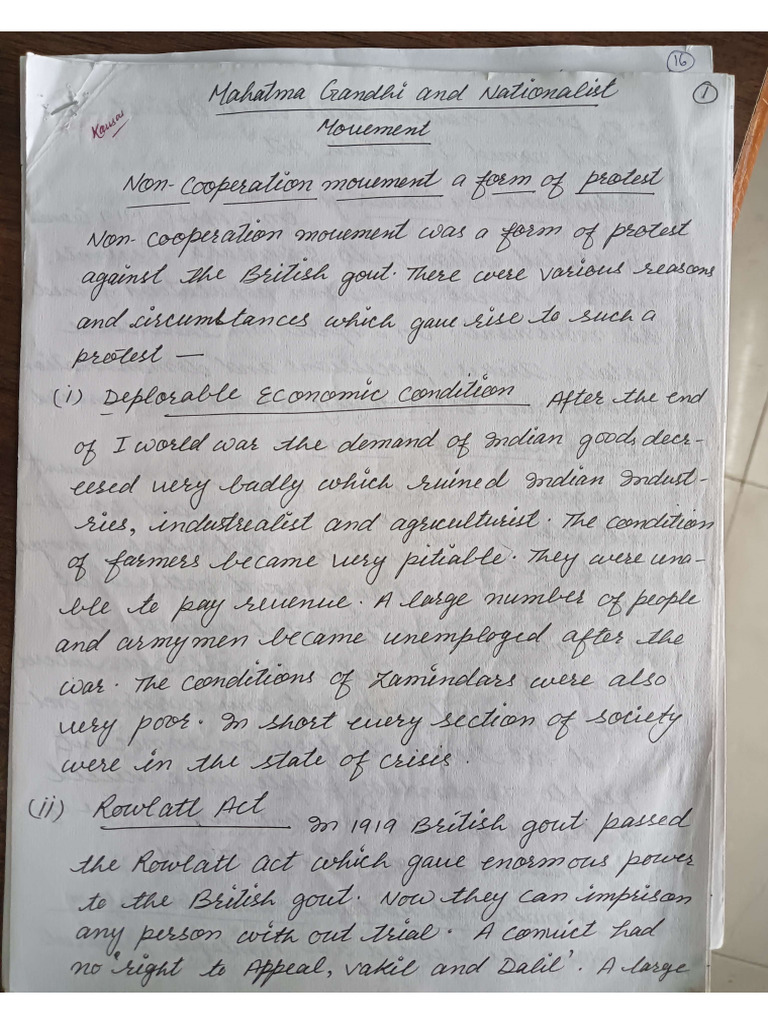 16
Mahatma Gandhi and Nationalist
1
Kausar
Movement
Non-Cooperation movement a form of protest
Non-cooperation movement was a form of protest
against the British govt. There were various reasons
and circumstances which gave rise to such a
protest —
(i) Deplorable Economic Condition After the end
of I world war the demand of Indian goods decr-
eesed very badly which ruined Indian Indust-
ries, industrealist and agriculturist. The condition
of farmers became very pitiable. They were una-
ble to pay revenue. A large number of people
and armymen became unemployed after the
war. The conditions of Zamindars were also
very poor. In short every section of society
were in the state of crisis.
(ii) Rowlatt Act In 1919 British govt. passed
the Rowlatt act which gave enormous power
to the British govt. Now they can imprison
any person with out trial. A convict had
no 'right to Appeal, vakil and Dalil'. A large